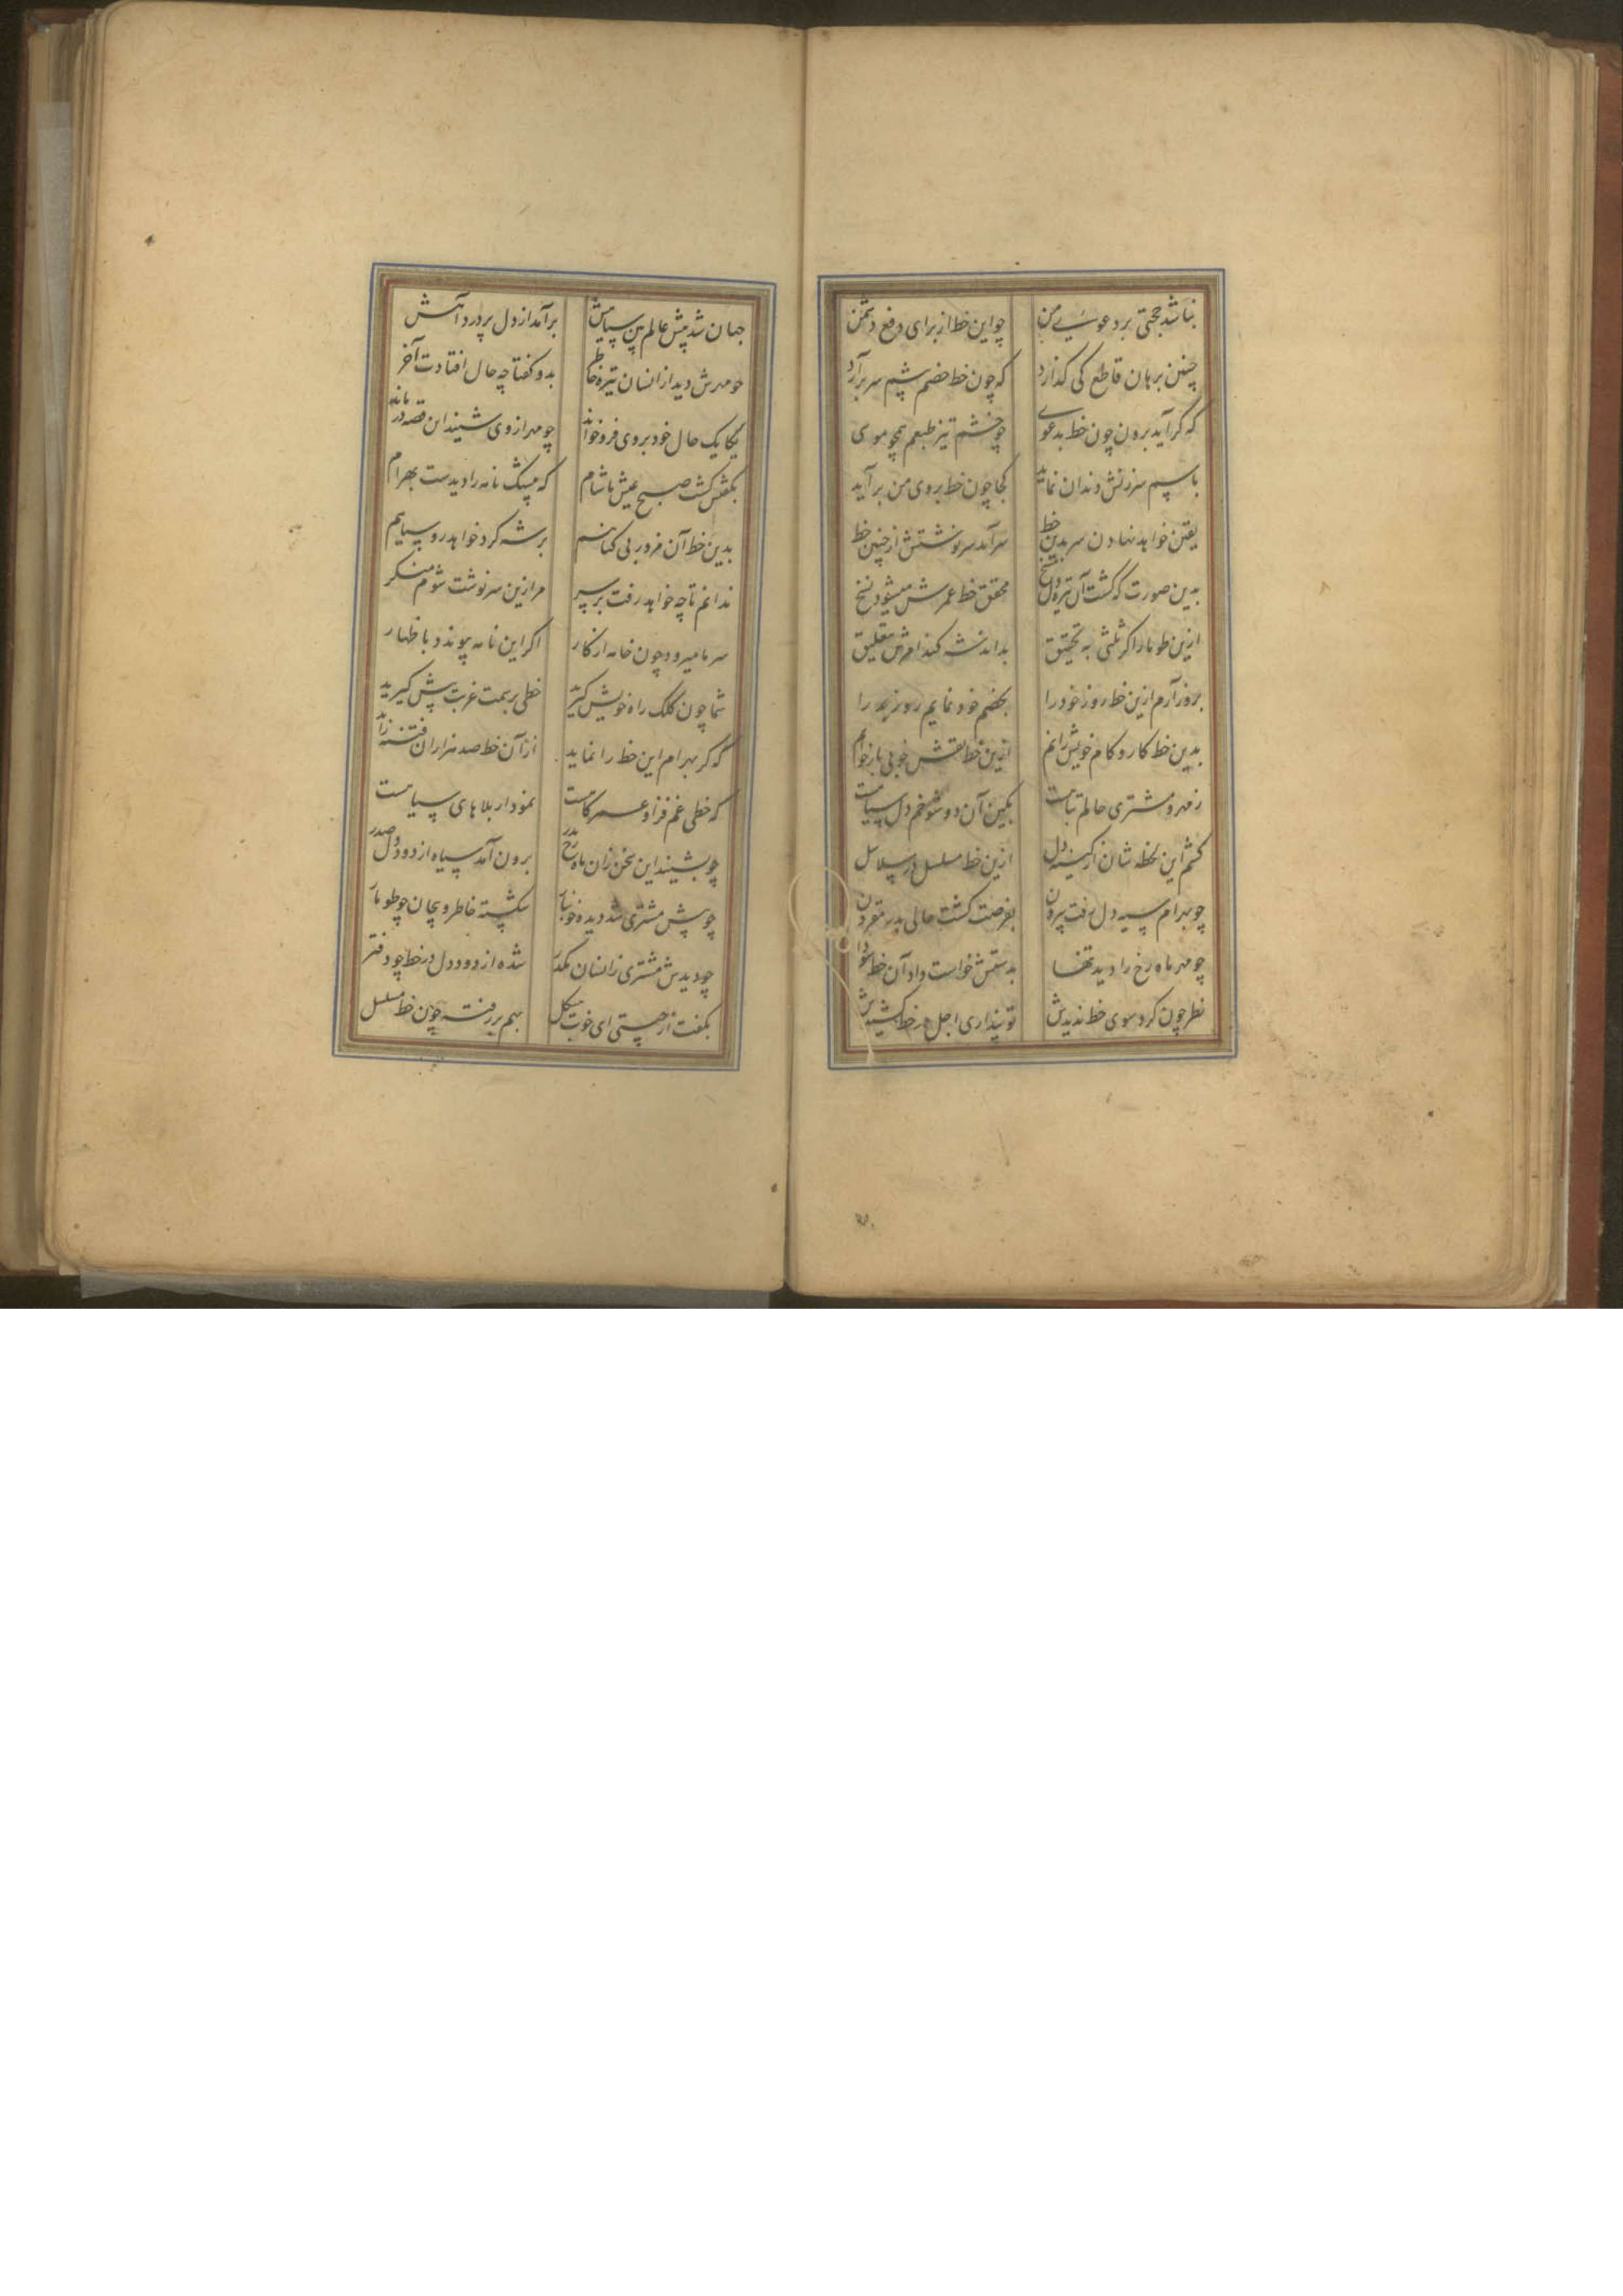 نباشد حجتی بر دعوی من چو این خط از برای دفع دشمن
چنین برهان قاطع کی گذارد که چون خط خصم پیشم سر برآرد
که گر آید برون چون خط بدعوی چو خشم تیز طبعم همچو موسی
باسپم سرزنش دندان نماید کجا چون خط بروی من برآید
یقین خواهد نهادن سر بدین خط سرآمد سرنوشتش از چنین خط
بدین صورت که گشت آن تیره دل محقق خط عمرش میشود نسخ
ازین طومار اگر ثلثی به تحقیق بداند شه کند امرش تعلیق
بروز آرم ازین خط روز خود را بخصم خود نمایم روز بد را
بدین خط کار و کام خویش رانم ازین خط نقش خوبی باز خوانم
ز مهر و مشتری حالم تباهست بکین آن دو شوخم دل سیاهست
کشم این لحظه شان از کینه دل ازین خط مسلسل در سلاسل
چو بهرام سیه دل رفت بیرون بفرصت گشت حالی بدر مقرون
چو مهر ماه رخ را دید تنها بدستش خواست داد آن خط
نظر چون کرد سوی خط ندیدش تو پنداری اجل در خط کشیدش
جهان شد پیش عالم بین سیاهش برآمد از دل پردرد آهش
چو مهرش دید از انسان تیره خاطر بدو گفتا چه حال افتادت آخر
یکایک حال خود بر وی فرو خواند چو مهر از وی شنید این قصه درماند
بگفتش گشت صبح عیش ما شام که بیشک نامه را دیدست بهرام
بدین خط آن مزور بی گناهم بر شه کرد خواهد روسیاهم
ندانم تا چه خواهد رفت بر سر مر ازین سرنوشت شوم منکر
سر ما میرود چون خامه از کار اگر این نامه پیوندد باظهار
شما چون کلک راه خویش گیرید خطی بر سمت غربت پیش گیرید
که گر بهرام این خط را نماید از آن خط صد هزاران فتنه زاید
که خطی غم فزا و عمر کاهست نمودار بلاهای سیاهست
چو بشنید این سخن زان ماه رخ بدر برون آمد سیاه از دود دل صدر
چو پیش مشتری شد دیده خونبار شکسته خاطر و پیچان چو طومار
چو دیدش مشتری زانسان مکدر شده از دود دل در خط چو دفتر
بگفت از چیستی ای خوب هیکل بهم بررفته چون خط مسلسل